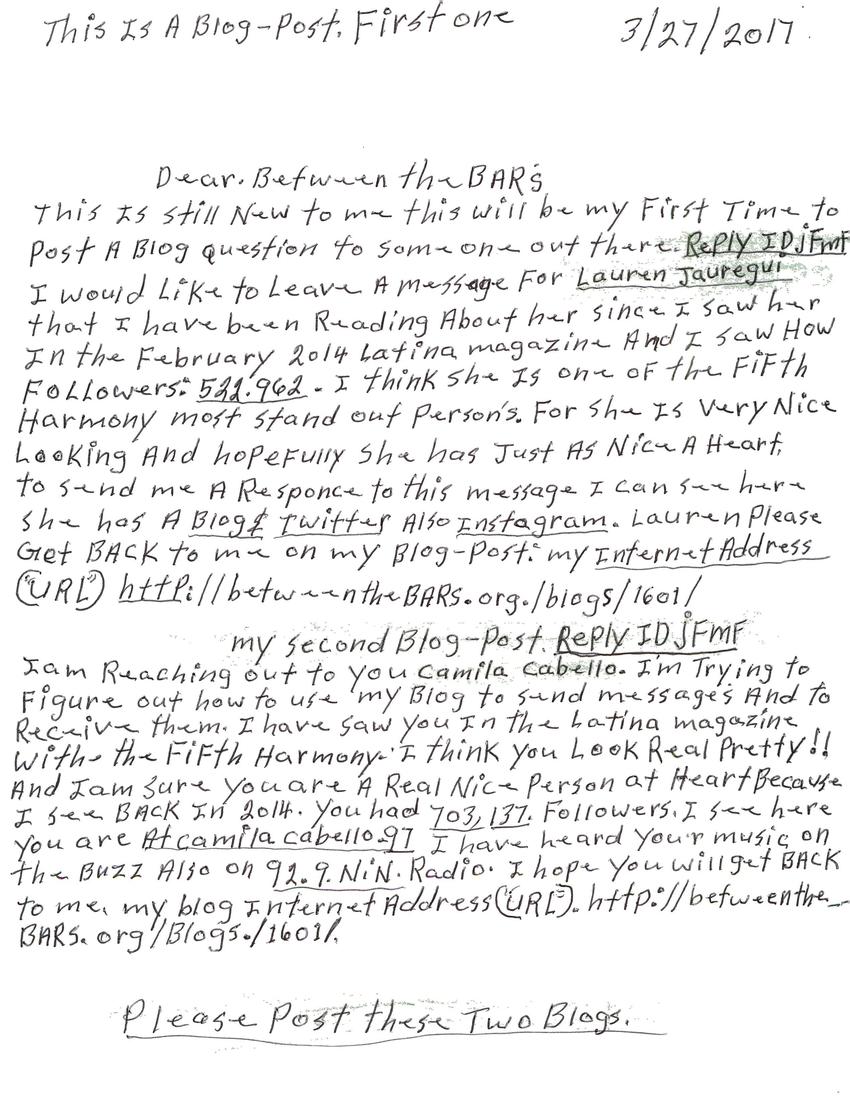 This Is A Blog-Post. First one 3/27/2017
Dear. Between the BARs
This Is still New to me this will be my First Time to
Post A Blog question to someone out there. Reply IDjFmF
I would Like to Leave A message For Lauren Jauregui
that I have been Reading About her since I saw her
In the February 2014 Latina magazine And I saw How
Followers: 522.962. I think she Is one of the FiFth
Harmony most stand out Person's. For she Is Very Nice
Looking And hopeFully she has Just As Nice A Heart,
to send me A Responce to this message I can see here
she has A Blog & Twitter Also Instagram. Lauren Please
Get BACK to me on my Blog-Post: my Internet Address
("URL") http://betweentheBARs.org./blogs/1601/
my second Blog-Post. Reply IDjFmF
I am Reaching out to you Camila Cabello. I'm Trying to
Figure out how to use my Blog to send message's And to
Receive them. I have saw you In the Latina magazine
With the FiFth Harmony. I think you Look Real Pretty!!
And I am sure you are A Real Nice Person at Heart Because
I see BACK In 2014. you had 703,137. Followers. I see here
you are At camila cabello.97 I have heard your music on
the Buzz Also on 92.9. NiN. Radio. I hope you will get BACK
to me. my blog Internet Address ("URL"). http://betweenthe
BARs.org/Blogs./1601/.
Please Post these Two Blogs.